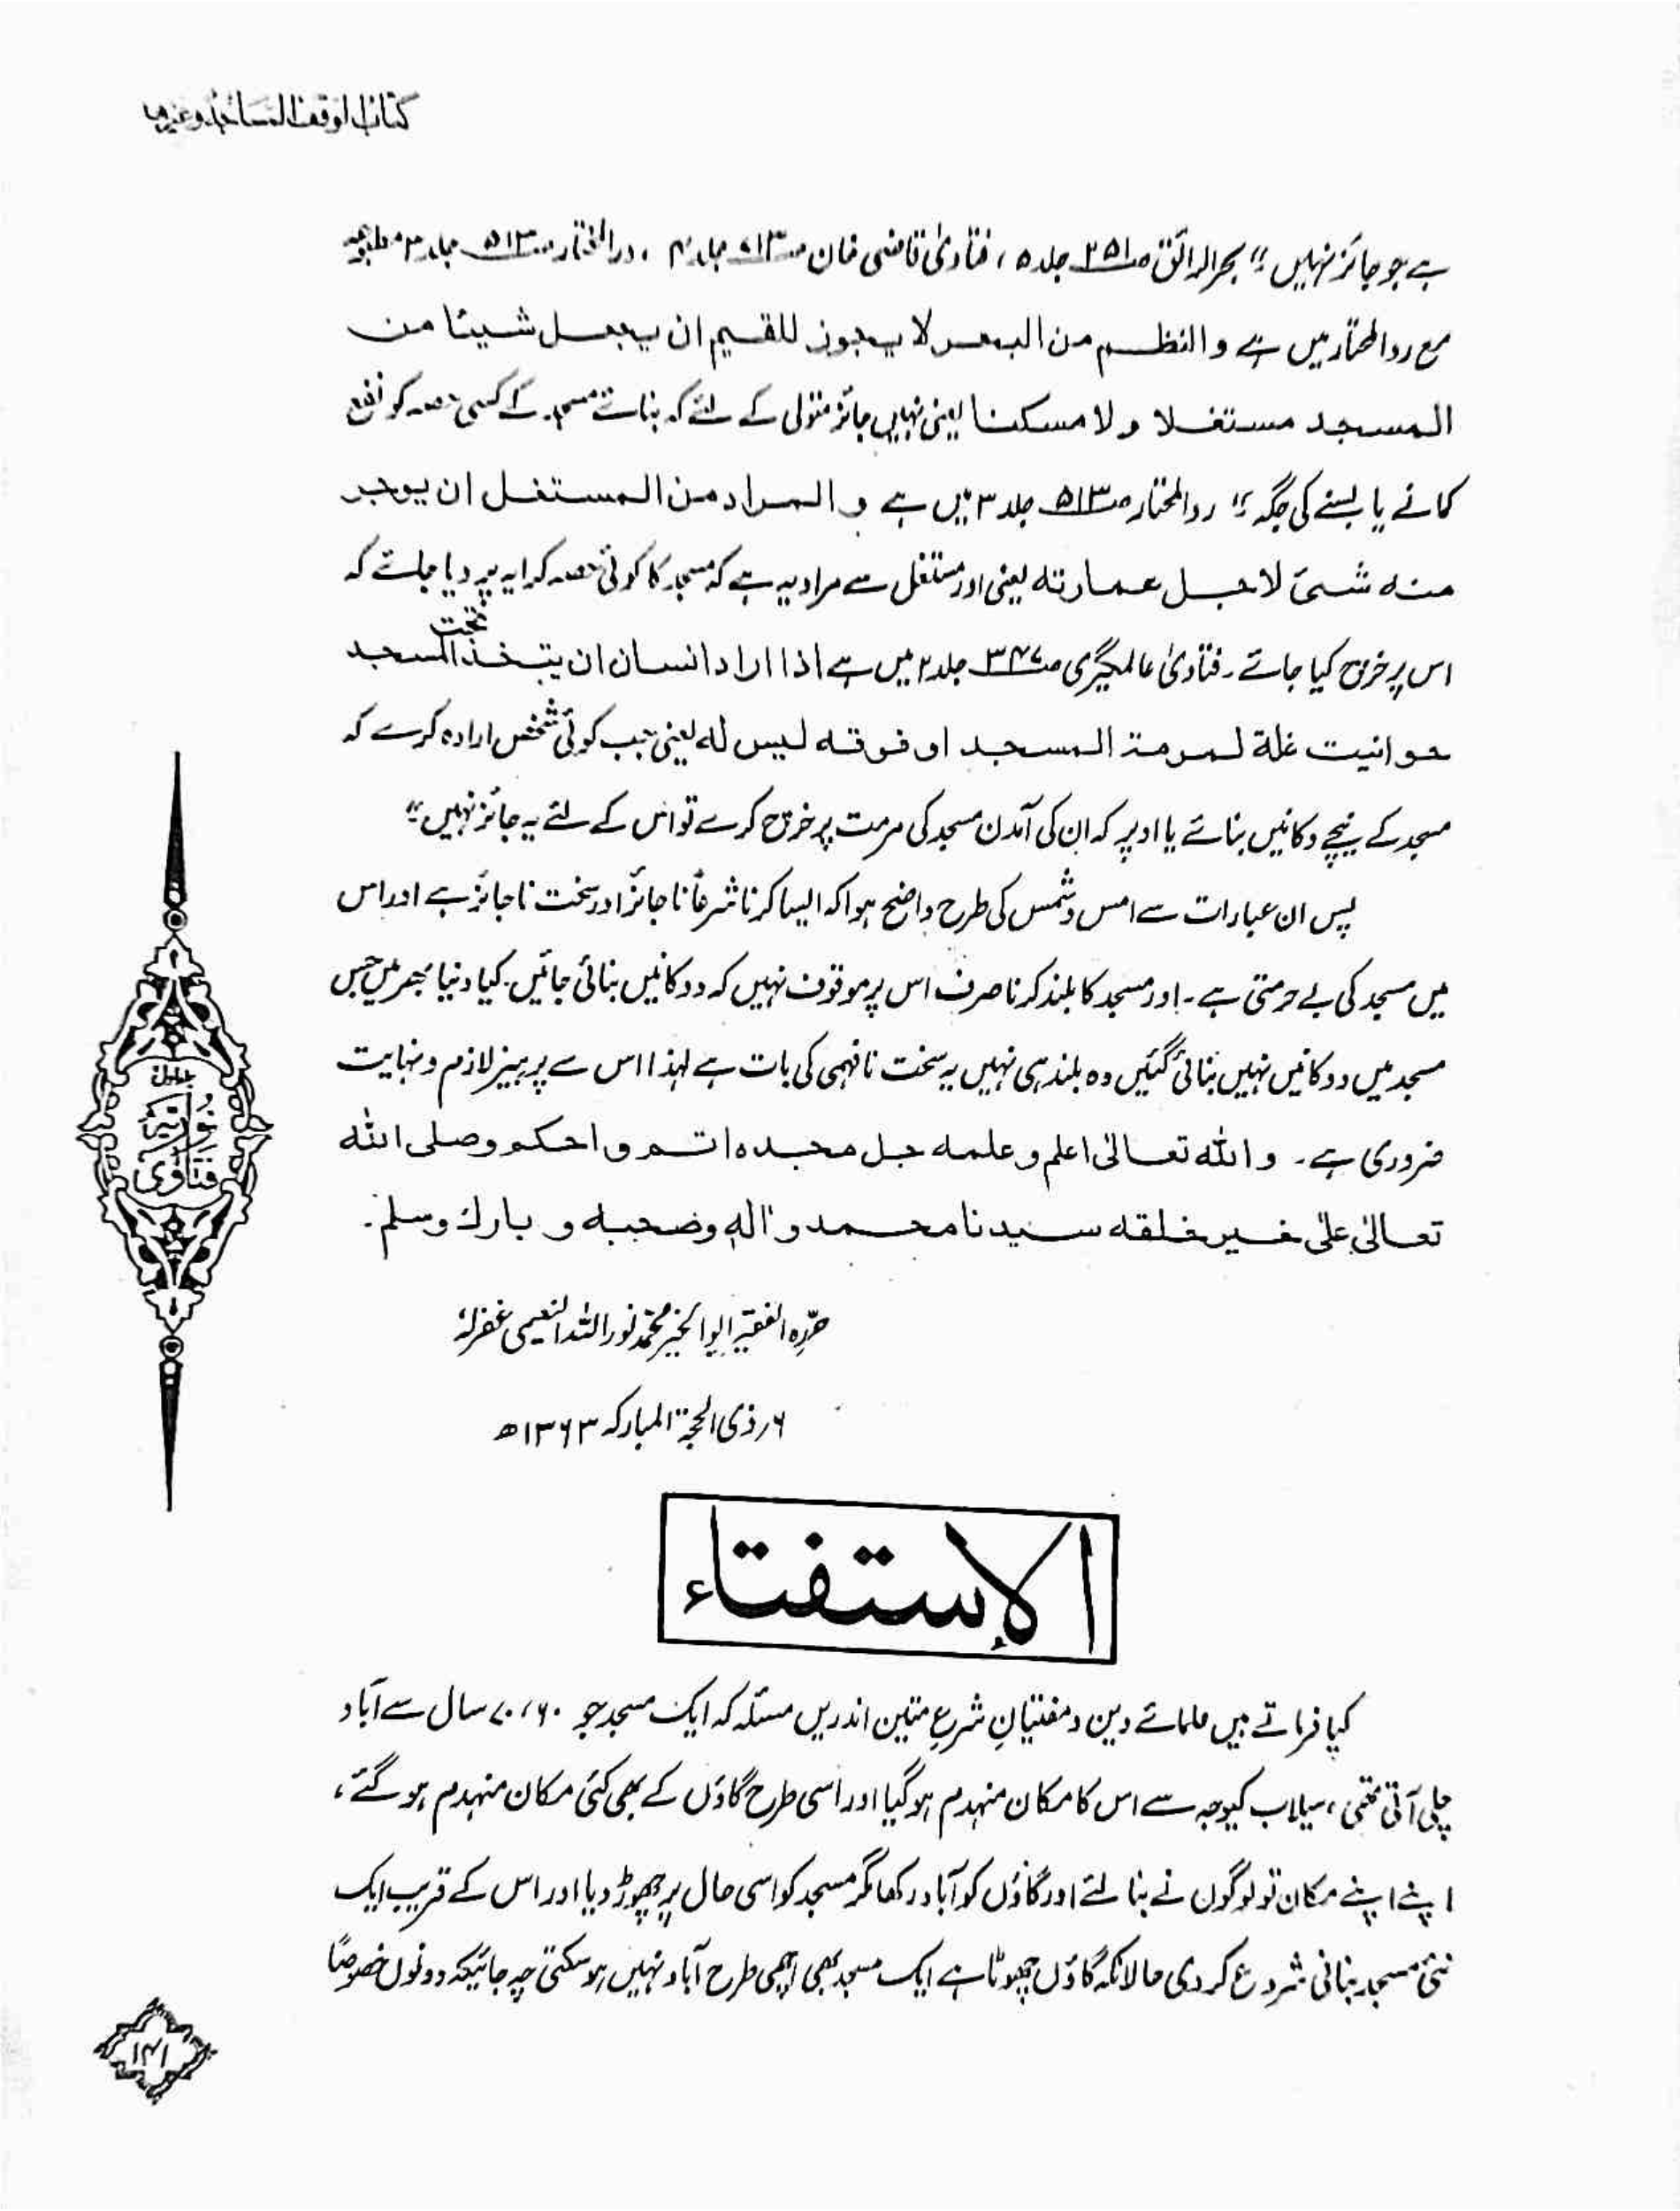 کتاب الوقف المساجد وغیرہا
ہے جو جائز نہیں۔" بحر الرائق ص۲۵۱ جلد ۵ ، فتاویٰ قاضی خان ص۷۱۳ جلد ۴ ، درالمختار ص۵۱۳ جلد ۳ مطبوعہ
مع ردالمحتار میں ہے والنظم من البحر لا یجوز للقیم ان یجعل شیئا من
المسجد مستغلا ولا مسکنا یعنی نہیں جائز متولی کے لئے کہ بنائے مسجد کے کسی حصہ کو نفع
کمانے یا بسنے کی جگہ۔" ردالمحتار ص۵۱۳ جلد ۳ میں ہے والمراد من المستغل ان یوجر
منہ شیئ لاجل عمارتہ یعنی اور مستغل سے مراد یہ ہے کہ مسجد کا کوئی حصہ کرایہ پر دیا جائے کہ
اس پر خرچ کیا جائے۔ فتاویٰ عالمگیری ص۳۴۷ جلد ۲ میں ہے اذا اراد انسان ان یتخذ تحت المسجد
حوانیت غلة لمرمة المسجد او فوقہ لیس لہ یعنی جب کوئی شخص ارادہ کرے کہ
مسجد کے نیچے دکانیں بنائے یا اوپر کہ ان کی آمدن مسجد کی مرمت پر خرچ کرے تو اس کے لئے یہ جائز نہیں۔"
پس ان عبارات سے امس وشمس کی طرح واضح ہوا کہ ایسا کرنا شرعًا ناجائز اور سخت ناجائز ہے اور اس
میں مسجد کی بے حرمتی ہے۔ اور مسجد کا بلند کرنا صرف اس پر موقوف نہیں کہ دوکانیں بنائی جائیں۔ کیا دنیا بھر میں جس
مسجد میں دوکانیں نہیں بنائی گئیں وہ بلند ہی نہیں یہ سخت نافہمی کی بات ہے لہذا اس سے پرہیز لازم و نہایت
ضروری ہے۔ واللہ تعالیٰ اعلم وعلمہ جل مجدہ اتم واحکم وصلی اللہ
تعالیٰ علیٰ خیر خلقہ سیدنا محمد واٰلہٖ وصحبہ و بارک وسلم۔
حرّرہ الفقیر ابوالخیر محمد نور اللہ النعیمی غفرلہٗ
۶؍ ذی الحجۃ المبارکہ ۱۳۶۳ھ
الاِستفتاء
کیا فرماتے ہیں علمائے دین ومفتیانِ شرعِ متین اندریں مسئلہ کہ ایک مسجد جو ۶۰، ۷۰ سال سے آباد
چلی آتی تھی، سیلاب کیوجہ سے اس کا مکان منہدم ہو گیا اور اسی طرح گاؤں کے بھی کئی مکان منہدم ہو گئے،
اپنے اپنے مکان تو لوگوں نے بنا لئے اور گاؤں کو آباد رکھا مگر مسجد کو اسی حال پر چھوڑ دیا اور اس کے قریب ایک
نئی مسجد بنانی شروع کر دی حالانکہ گاؤں چھوٹا ہے ایک مسجد بھی اچھی طرح آباد نہیں ہو سکتی چہ جائیکہ دونوں خصوصًا
نوریہ
فتاویٰ
۱۴۱